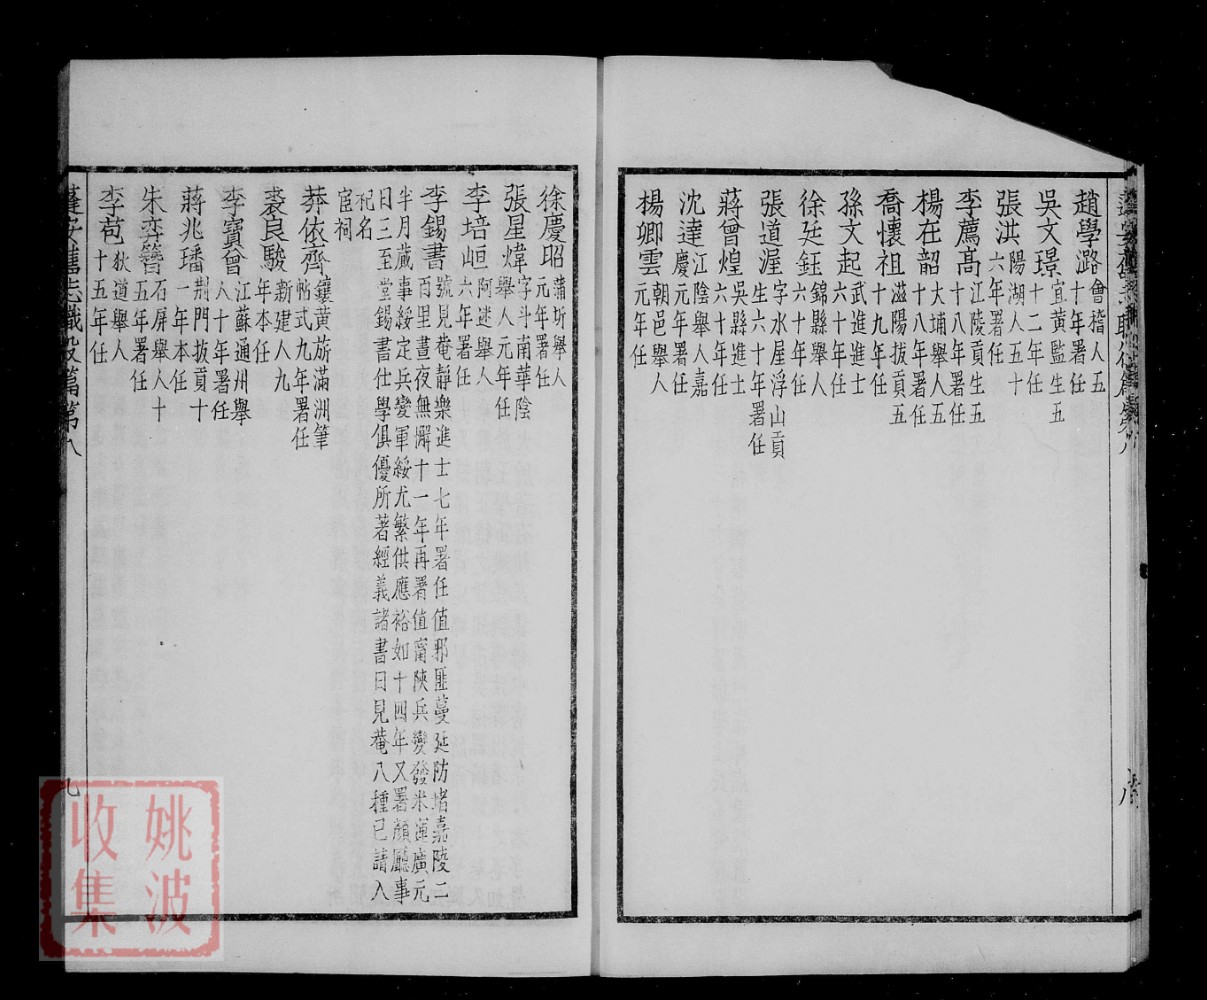 趙學潞會稽人五十年署任
吳文璟宜黃監生五十二年任
張洪陽湖人五十六年署任
李薦高江陵貢生五十八年署任
楊在韶大埔舉人五十八年署任
喬懷祖滋陽拔貢五十九年任
孫文起武進進士六十年任
徐廷鈺錦縣舉人六十年任
張道渥字水屋浮山貢生六十年署任
蔣曾煌吳縣進士六十年任
沈達江陰舉人嘉慶元年署任
楊卿雲朝邑舉人元年任
徐慶昭蒲圻舉人元年署任
張星煒字斗南華陰舉人元年任
李培峘阿迷舉人六年署任
李錫書號見菴靜樂進士七年署任值邪匪蔓延防堵嘉陵二
百里晝夜無懈十一年再署值甯陝兵變發米運廣元
半月蕆事綏定兵變軍綏尤繁供應裕如十四年又署顏廳事
曰三至堂錫書仕學俱優所著經義諸書曰見菴八種已請入
祀名
宦祠
莽依齊鑲黃旂滿洲筆帖式九年署任
裘良駿新建人九年本任
李寶曾江蘇通州舉人十年署任
蔣兆璠荊門拔貢十一年本任
朱奕簪石屏舉人十五年署任
李苞狄道舉人十五年任
蓬安舊志職官篇第八
九
姚波
收集